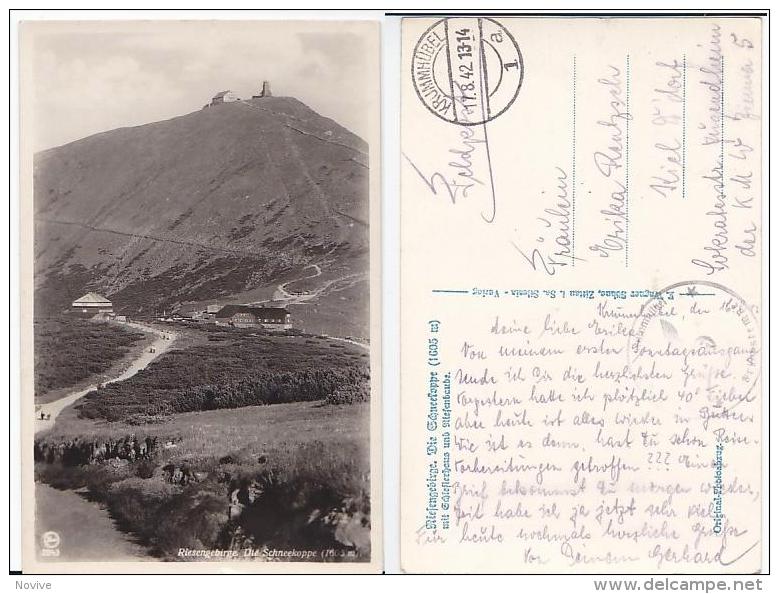 2043
Riesengebirge. Die Schneekoppe (1605 m)
KRUMMHÜBEL
17.8.42 13-14
a
1
Feldpost
Fräulein
Erika Rentzsch
Kiel
Sokratesstr. Jugendheim
der K M W Zimmer 5
F. Wagner Söhne, Zittau i. Sa. Verlag
Riesengebirge. Die Schneekoppe (1605 m)
mit Schlesierhaus und Riesenbaude.
Original-Photoabzug.
Krummhübel, den 16
Meine liebe Erika
Von meinem ersten Sonntagsausgang
sende ich Dir die herzlichsten Grüße.
Vorgestern hatte ich plötzlich 40° Fieber
aber heute ist alles wieder in Butter.
Wie ist es denn, hast Du schon Reise-
Vorbereitungen getroffen??? Einen
Brief bekommst Du morgen wieder,
Zeit habe ich ja jetzt sehr viel.
Für heute nochmals herzliche Grüße
Von Deinem Gerhard
Novive
http://www.delcampe.net